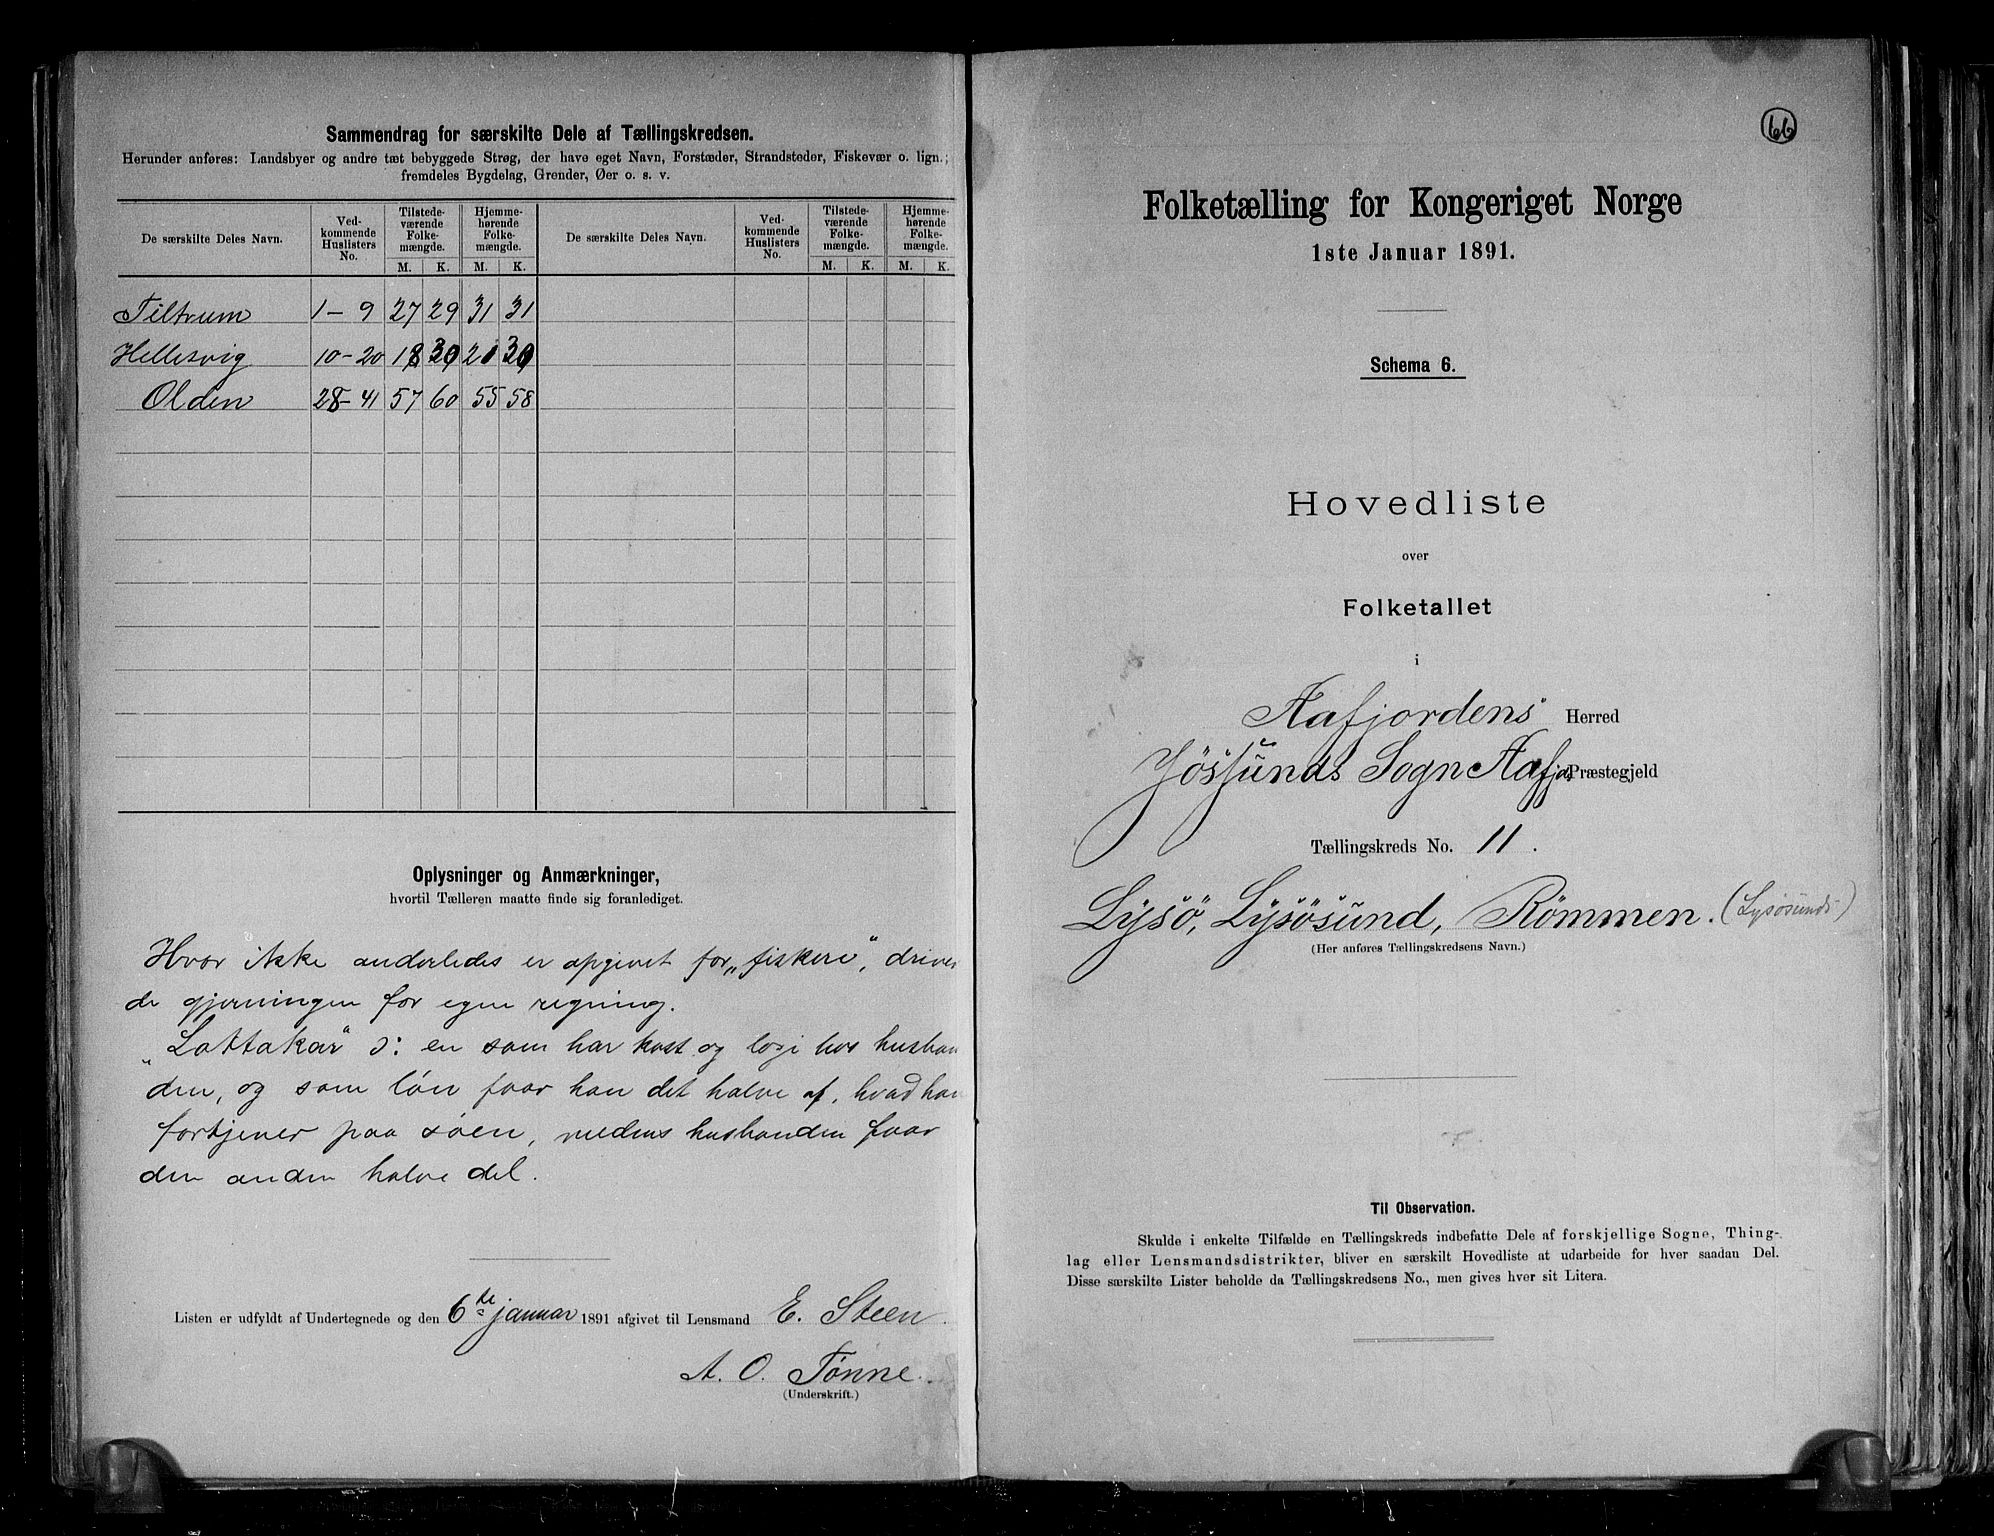 Sammendrag for særskilte Dele af Tællingskredsen.
Herunder anføres: Landsbyer og andre tæt bebyggede Strøg, der have eget Navn, Forstæder, Strandsteder, Fiskevær o. lign.;
fremdeles Bygdelag, Grender, Øer o. s. v.
De særskilte Deles Navn. Ved-kommende Huslisters No. Tilstede-værende Folke-mængde. Hjemme-hørende Folke-mængde. De særskilte Deles Navn. Ved-kommende Huslisters No. Tilstede-værende Folke-mængde. Hjemme-hørende Folke-mængde.
M. K. M. K. M. K. M. K.
Tiltrum 1-9 27 29 31 31
Hellesvig 10-20
Olden 28-41 57 60 55 58
Oplysninger og Anmærkninger,
hvortil Tælleren maatte finde sig foranlediget.
Hvor ikke anderledes er opgivet for „fiskere", drives
de gjerningen for egen regning.
„Lottakar" ɔ: en som har kost og logi hos husban
den, og som løn faar han det halve af, hvad han
fortjener paa søen, medens husbonden faar
den anden halve del.
Listen er udfyldt af Undertegnede og den 6te januar 1891 afgivet til Lensmand E. Steen.
A. O. Tønne.
(Underskrift.)
66
Folketælling for Kongeriget Norge
1ste Januar 1891.
Schema 6.
Hovedliste
over
Folketallet
i
Aafjordens Herred
Jössunds Sogn Aafjds Præstegjeld
Tællingskreds No. 11.
Lysö, Lysösund, Römmen. (Lysøsund)
(Her anføres Tællingskredsens Navn.)
Til Observation.
Skulde i enkelte Tilfælde en Tællingskreds indbefatte Dele af forskjellige Sogne, Thing-
lag eller Lensmandsdistrikter, bliver en særskilt Hovedliste at udarbeide for hver saadan Del.
Disse særskilte Lister beholde da Tællingskredsens No., men gives hver sit Litera.